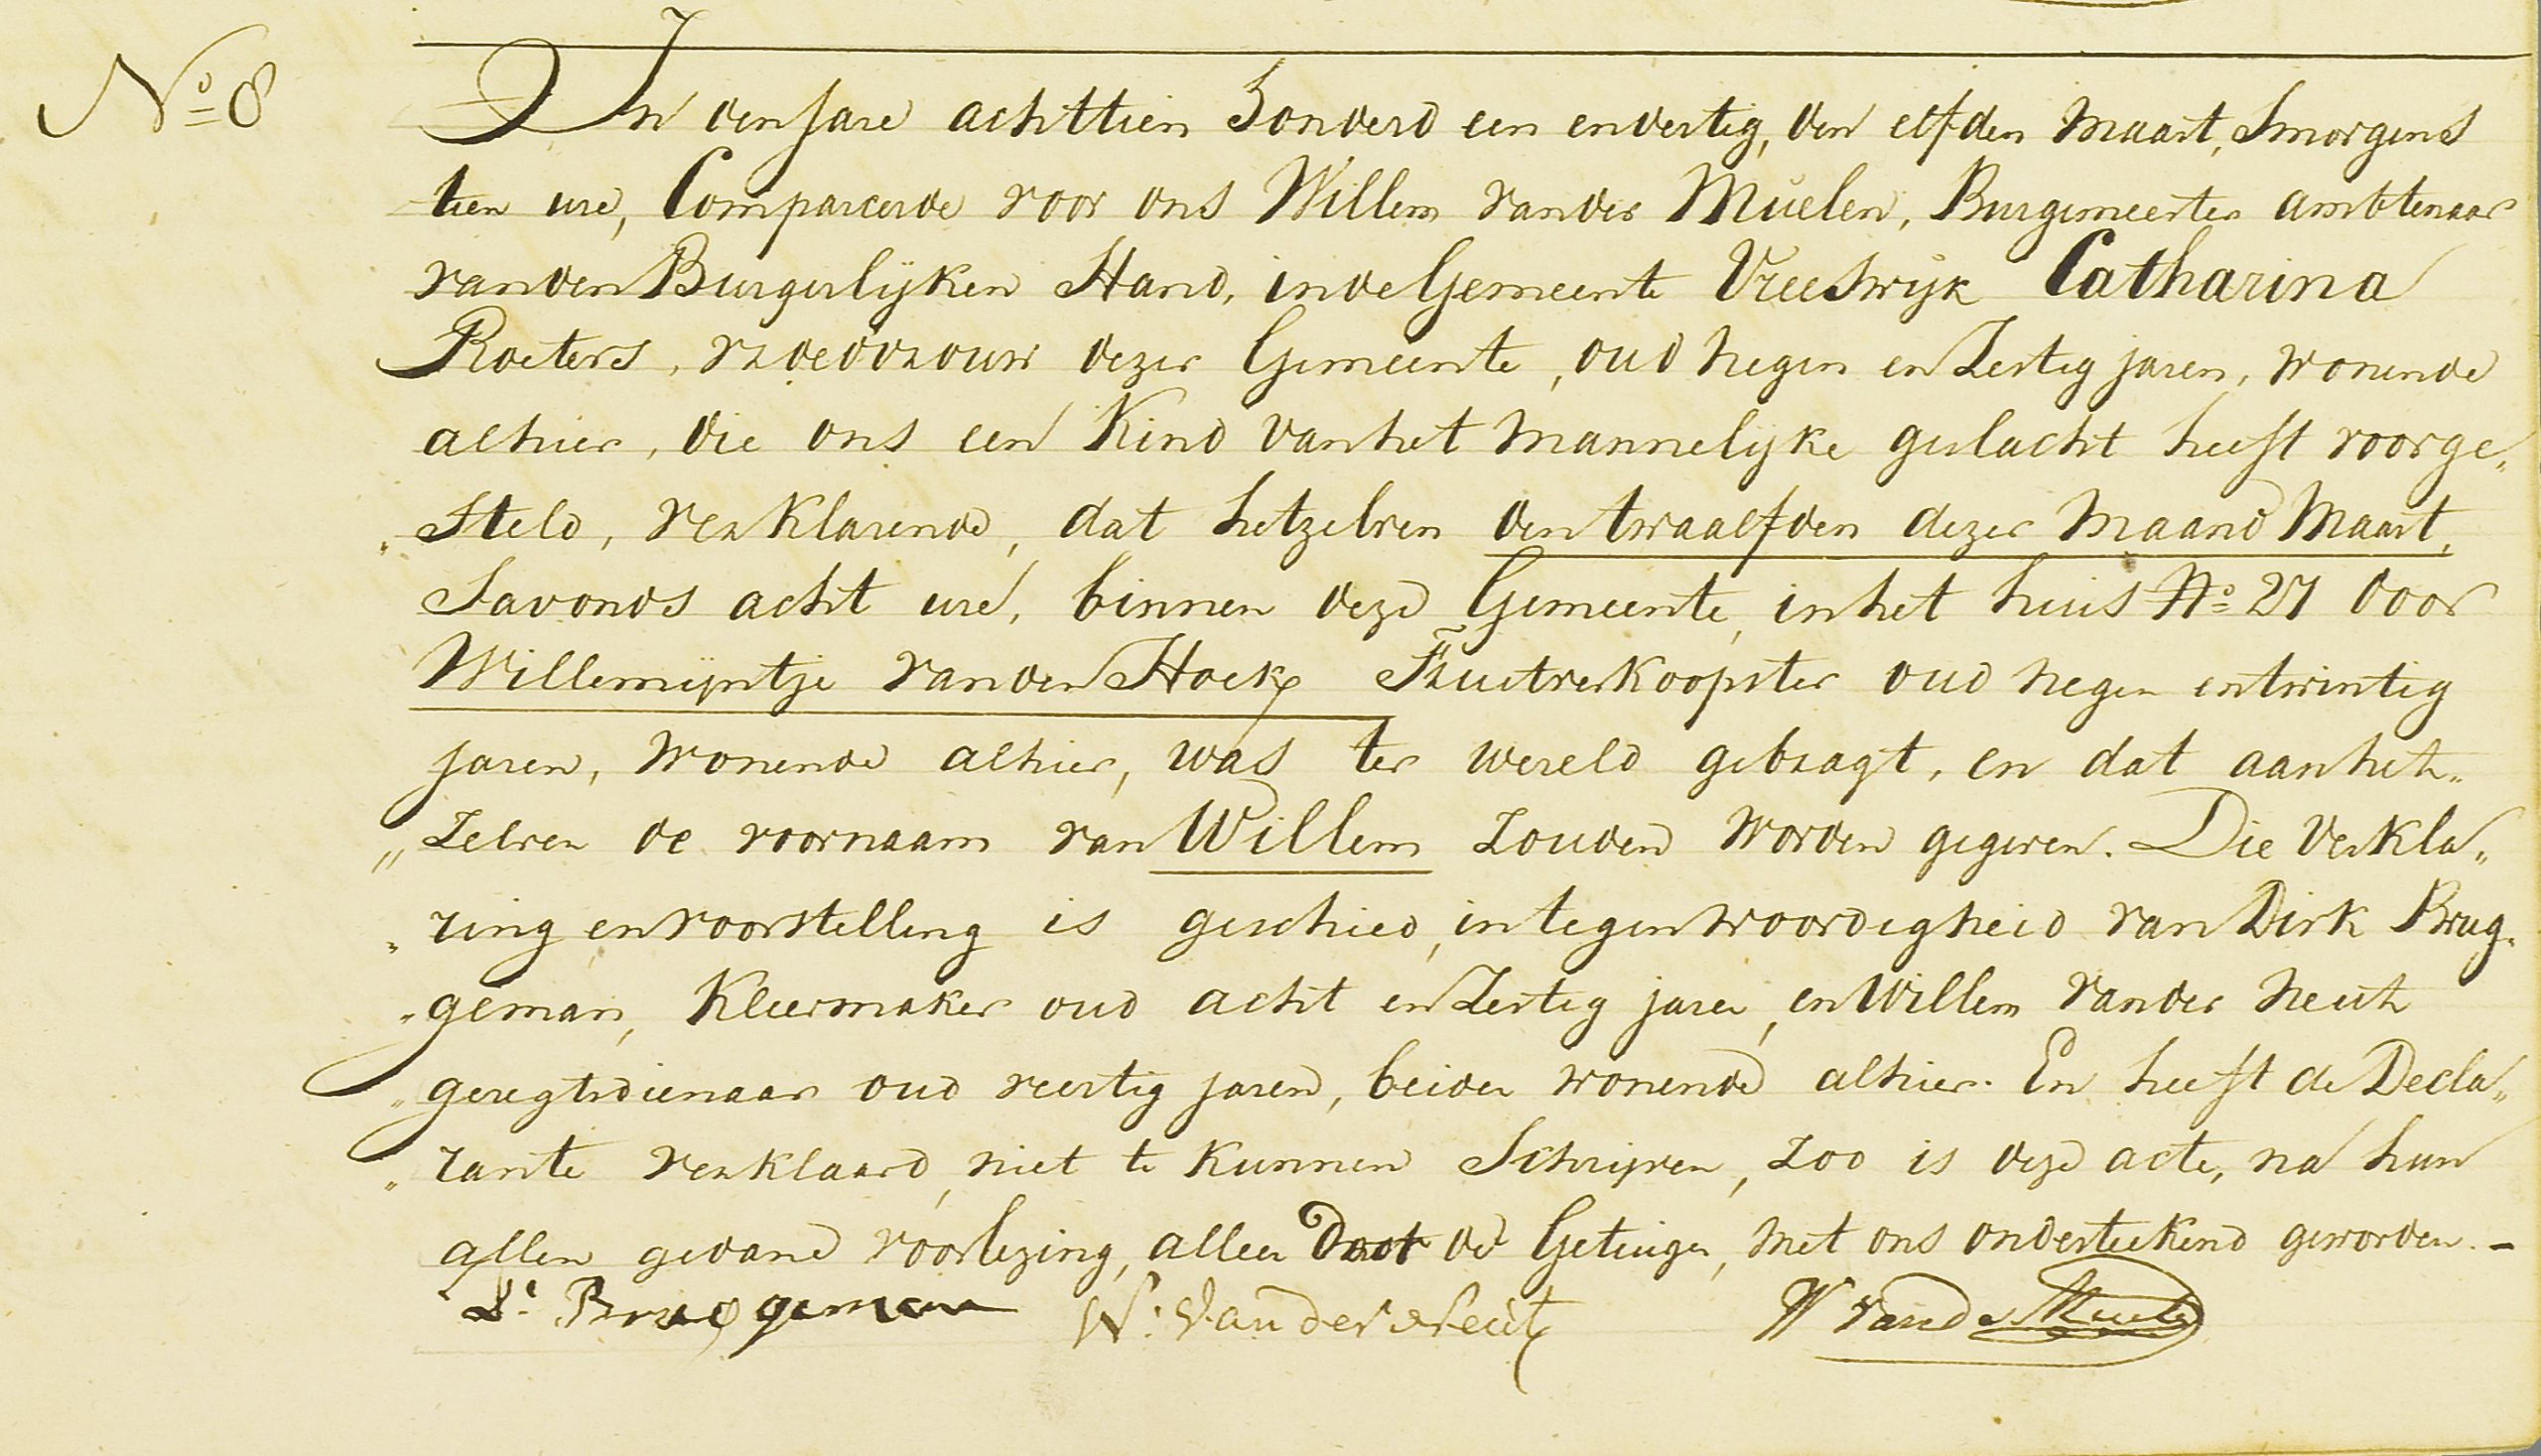 No 8
In den Jare achttien Honderd een en dertig, den elfden Maart, Smorgens
tien ure, Compareerde voor ons Willem vander Muelen, Burgemeester ambtenaar
vanden Burgerlijken Stand, in de Gemeente Vreeswijk Catharina
Roeters, vroedvrouw dezer Gemeente, oud negen en Zestig jaren, wonende
alhier, die ons een Kind van het Mannelijke geslacht heeft voorge„
„Steld, verklarende, dat hetzelven den twaalfden dezer Maand Maart,
Savonds acht ure, binnen deze Gemeente, in het huis No 27 door
Willemijntje vanden Hoek, Fruitverkoopster oud negen en twintig
jaren, wonende alhier, was ter wereld gebragt, en dat aan het„
„Zelven de voornaam van Willem zouden worden gegeven. Die Verkla„
„ring en voorstelling is geschied, in tegenwoordigheid van Dirk Brug„
„geman, Kleermaker oud acht en Zestig jaren, en Willem vander Neut
geregtsdienaar oud veertig jaren, beiden wonende alhier. En heeft de Decla„
„rante verklaard, niet te kunnen Schrijven, zoo is deze acte, na hun
allen gedane voorlezing, alleen door de Getuigen, met ons onderteekend geworden. –
D: Bruggeman W: van der Neut W vand Muelen